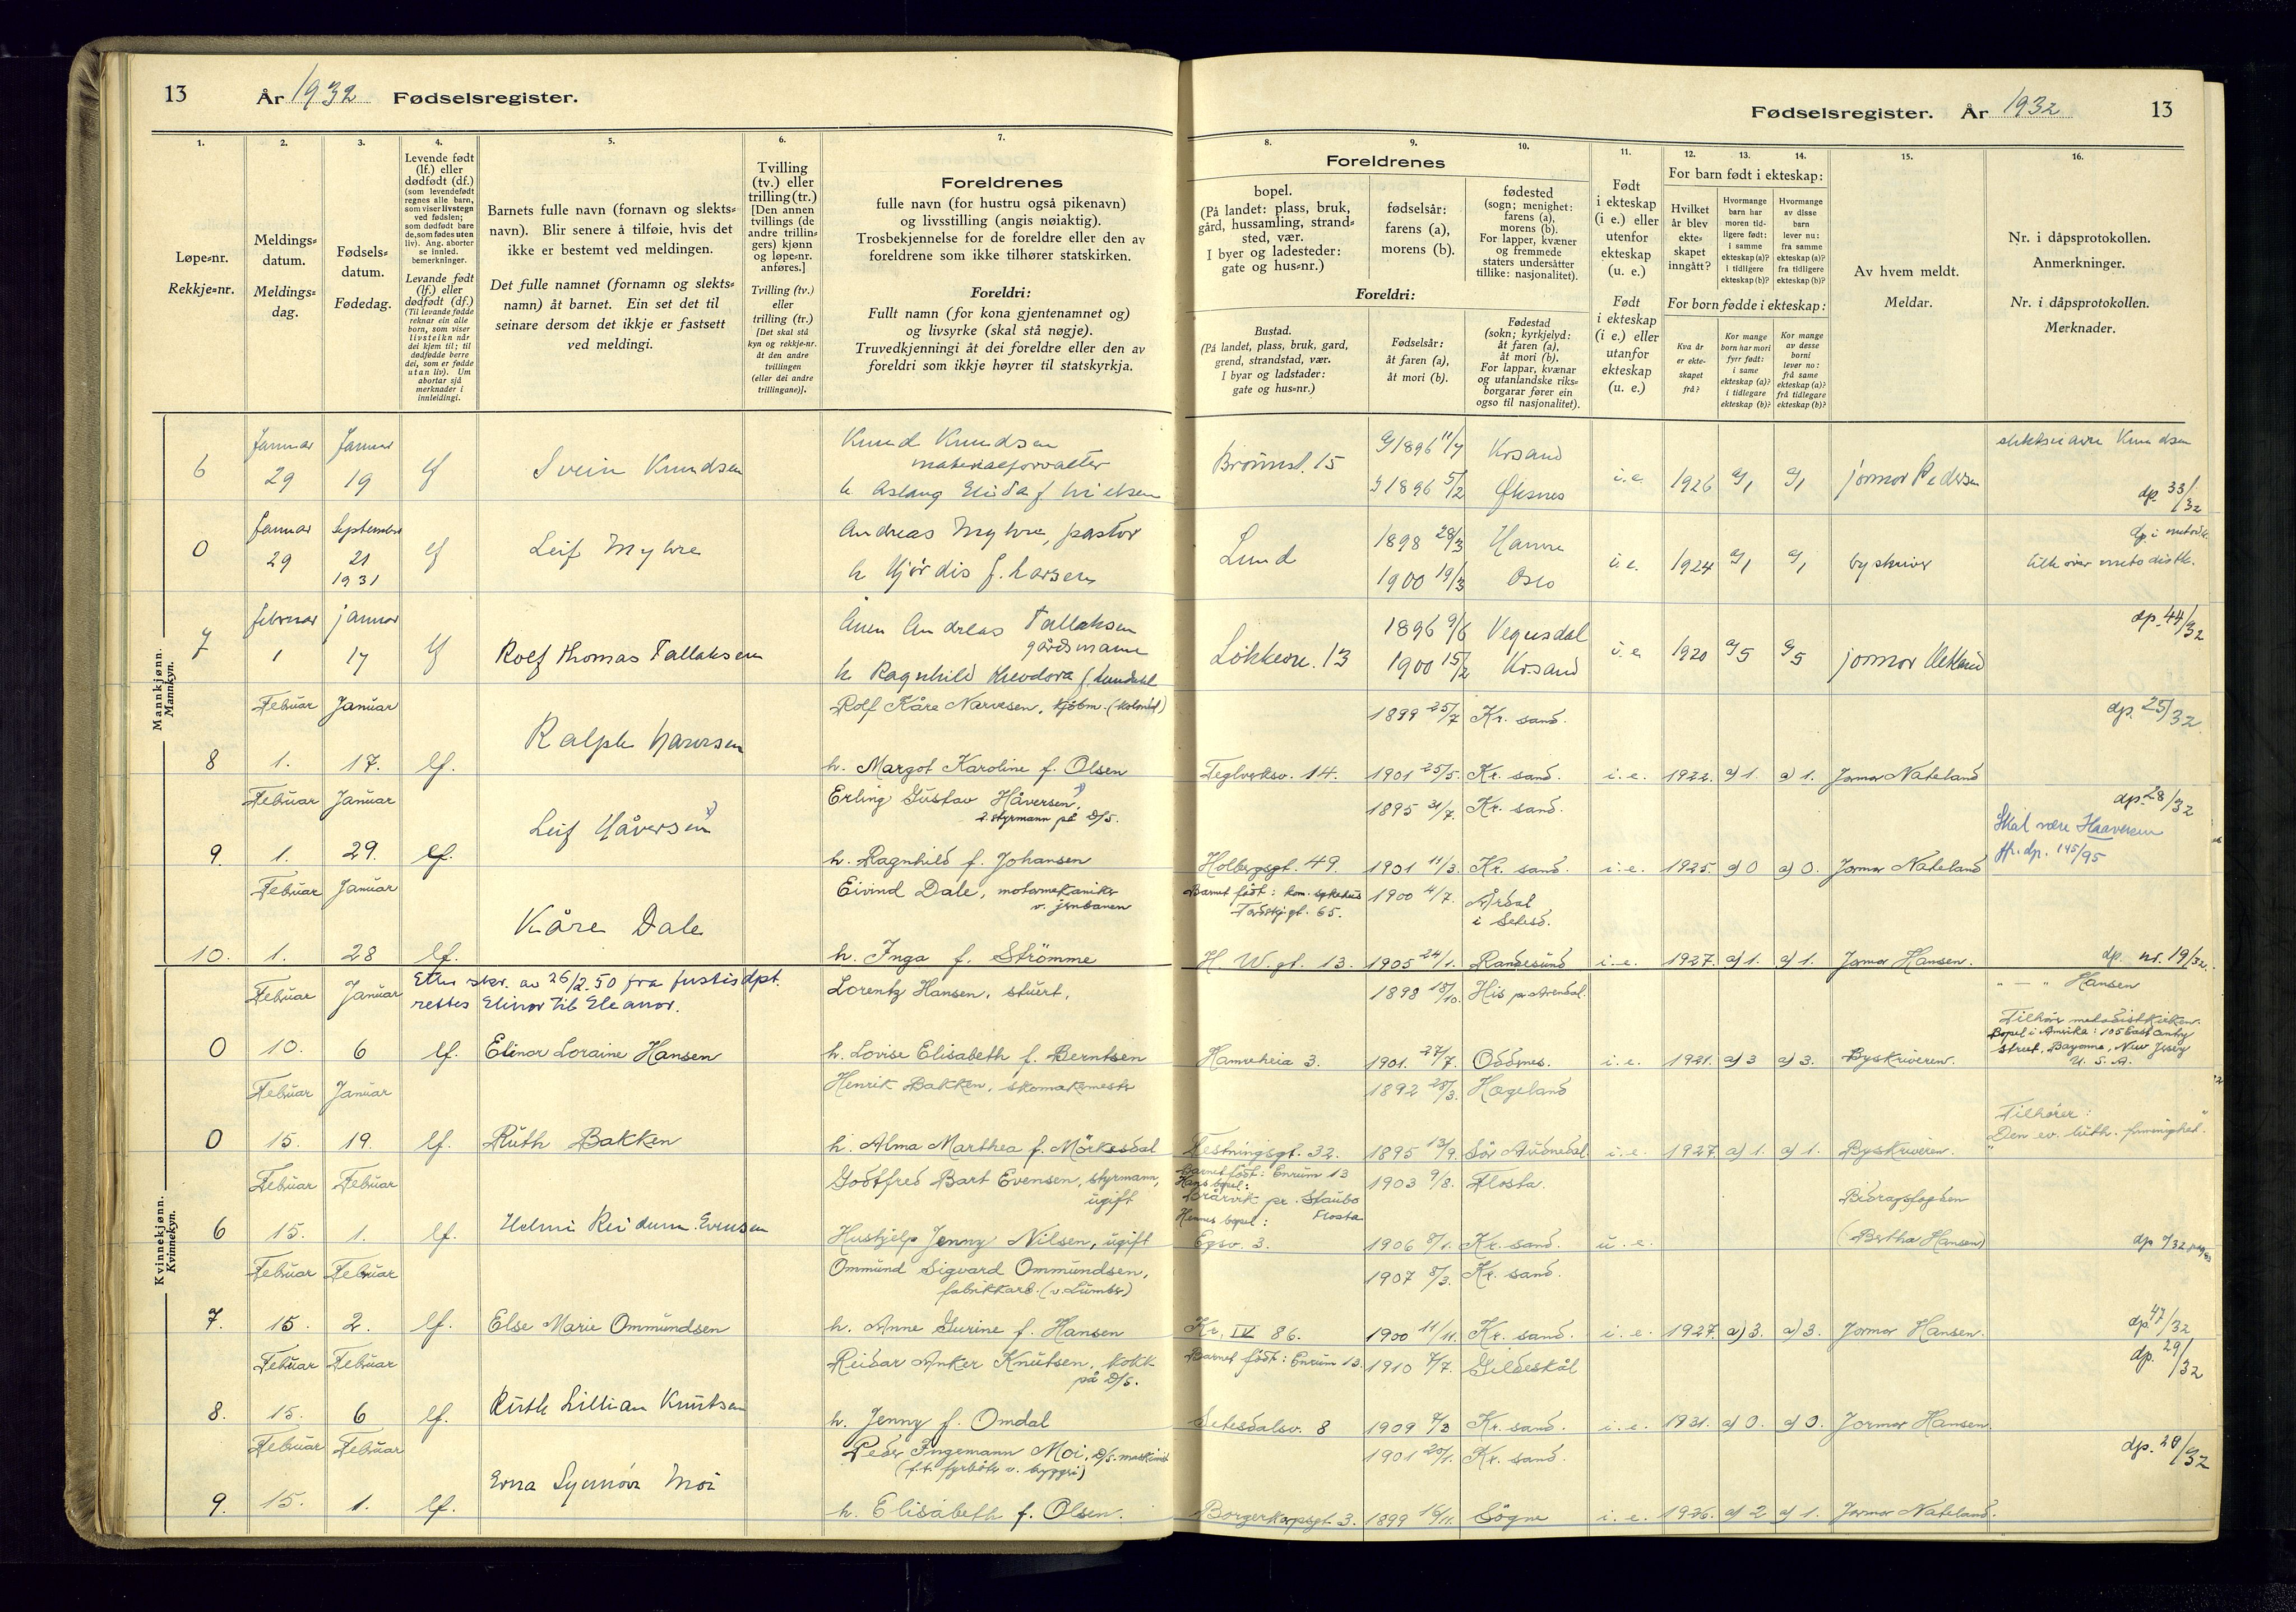 13
År 1932 Fødselsregister.
1.
Løpe=nr.
Rekkje=nr.
2.
Meldings=
datum.
Meldings=
dag.
3.
Fødsels=
datum.
Fødedag.
4.
Levende født
(lf.) eller
dødfødt (df.)
(som levendefødt
regnes alle barn,
som viser livstegn
ved fødslen;
som dødfødt bare
de, som fødes uten
liv). Ang. aborter
se innled.
bemerkninger.
Levande født
(lf.) eller
dødfødt (df.)
(Til levande fødde
reknar ein alle
born, som viser
livsteikn når
dei kjem til; til
dødfødde berre
dei, som er fødde
utan liv). Um
abortar sjå
merknader i
innleidingi.
5.
Barnets fulle navn (fornavn og slekts=
navn). Blir senere å tilføie, hvis det
ikke er bestemt ved meldingen.
Det fulle namnet (fornamn og slekts=
namn) åt barnet. Ein set det til
seinare dersom det ikkje er fastsett
ved meldingi.
6.
Tvilling
(tv.) eller
trilling (tr.)
[Den annen
tvillings (de
andre trillin=
gers) kjønn
og løpe=nr.
anføres.]
Tvilling (tv.)
eller
trilling (tr.)
[Det skal stå
kyn og rekkje=nr.
åt den andre
tvillingen
(eller dei andre
trillingane)].
7.
Foreldrenes
fulle navn (for hustru også pikenavn)
og livsstilling (angis nøiaktig).
Trosbekjennelse for de foreldre eller den av
foreldrene som ikke tilhører statskirken.
Foreldri:
Fullt namn (for kona gjentenamnet og)
og livsyrke (skal stå nøgje).
Truvedkjenningi åt dei foreldre eller den av
foreldri som ikkje høyrer til statskyrkja.
Mannkjønn.
Mannkyn.
6
Januar
29
Januar
19
lf
Svein Knudsen
Knud Knudsen
materialforvalter
h Aslaug Elida f Nielsen
0
Januar
29
September
21
1931
lf
Leif Myhre
Andreas Myhre, pastor
h Hjørdis f. Larsen
7
februar
1
januar
17
lf
Rolf Thomas Tallaksen
Andreas Tallaksen
gårdsmann
h Ragnhild Theodora f. Lundahl
8
Februar
1.
Januar
17.
lf.
Ralph Narvesen
Rolf Kåre Narvesen, kjøbm. (kolonial)
h. Margot Karoline f. Olsen
9.
Februar
1.
Januar
29.
lf.
Leif Håversen
Erling Gustav Håversen,
2. styrmann på D/S.
h. Ragnhild f. Johansen
10.
Februar
1.
Januar
28
lf.
Kåre Dale
Eivind Dale, motormekaniker
v. jernbanen
h. Inga f. Strömme
Kvinnekjønn.
Kvinnekyn.
Etter skr. av 26/2.50 fra Justisdpt.
rettes Elinor til Eleanor.
0
Februar
10.
Januar
6
lf.
Elinor Loraine Hansen
Lorentz Hansen, stuert,
h. Lovise Elisabeth f. Berntsen
0
Februar
15.
Januar
19.
lf.
Ruth Bakken
Henrik Bakken, skomakermester
h. Alma Marthea f. Mörkesdal
6
Februar
15.
Februar
1.
lf.
Helmi Reidunn Evensen
Godtfred Bart Evensen, styrmann,
ugift
Hushjelp Jenny Nilsen, ugift
7.
Februar
15.
Februar
2.
lf.
Else Marie Ommundsen
Ommund Sigvard Ommundsen,
fabrikkarb. (v. Lumber)
h. Anne Gurine f. Hansen
8.
Februar
15.
Februar
6
lf.
Ruth Lillian Knutsen
Reidar Anker Knutsen, kokk
på D/S.
h. Jenny f. Omdal
9.
Februar
15.
Februar
1.
lf.
Erna Synnøve Moi
Peder Ingemann Moi, D/S. maskinist
(f.t. fyrbøter v. bryggeri)
h. Elisabeth f. Olsen.
Fødselsregister. År 1932 13
8.
Foreldrenes
bopel.
(På landet: plass, bruk,
gård, hussamling, strand=
sted, vær.
I byer og ladesteder:
gate og hus=nr.)
Foreldri:
Bustad.
(På landet, plass, bruk, gard,
grend, strandstad, vær.
I byar og ladstader:
gate og hus=nr.)
9.
fødselsår:
farens (a),
morens (b).
Fødselsår:
åt faren (a),
åt mori (b).
10.
fødested
(sogn; menighet:
farens (a),
morens (b).
For lapper, kvæner
og fremmede
staters undersåtter
tillike: nasjonalitet).
Fødestad
(sokn; kyrkjelyd:
åt faren (a),
åt mori (b).
For lappar, kvænar
og utanlandske riks=
borgarar fører ein
ogso til nasjonalitet).
11.
Født
i ekteskap
(i e.) eller
utenfor
ekteskap
(u. e.)
Født
i ekteskap
(i e.) eller
utanfor
ekteskap
(u. e.)
12.
For barn født i ekteskap:
Hvilket
år blev
ekte=
skapet
inngått?
For born fødde i ekteskap:
Kva år
er ekte=
skapet
frå?
13.
Hvormange
barn har
moren tid=
ligere født:
i samme
ekteskap (a)?
i tidligere
ekteskap (b)?
Kor mange
born har mori
fyrr født:
i same
ekteskap (a)?
i tidlegare
ekteskap (b)?
14.
Hvormange
av disse
barn
lever nu:
fra samme
ekteskap (a)?
fra tidligere
ekteskap (b)?
Kor mange
av desse
borni
lever no:
frå same
ekteskap (a)?
frå tidlegare
ekteskap (b)?
15.
Av hvem meldt.
Meldar.
16.
Nr. i dåpsprotokollen.
Anmerkninger.
Nr. i dåpsprotokollen.
Merknader.
Brønnst. 15
1896 11/7
1896 5/2
Krsand
Øksnes
i.e. 1926 a/1 a/1 jormor Pedersen
Knudsen
dp. 33/32
Lund
1898 28/3
1900 19/3
Hamre
Oslo
i.e. 1924 a/1 a/1 byskriver
dp. i metodistk.
tilhører metodistk.
Løkkevn. 13
1896 9/6
1900 15/2
Vegusdal
Krsand
i.e 1920 a/5 a/5 jormor
dp. 44/32
1899 25/7 Kr. sand.
Teglverksv. 14. 1901 25/5. Kr. sand. i.e. 1922. a) 1. a) 1. Jormor Nateland
dp. 25/32
1895 31/7. Kr. sand.
Holbergsgt. 49. 1901 11/3. Kr. sand. i.e. 1925. a) 0 a) 0. Jormor Nateland
dp. 28/32
Skal være Haaversen
jfr. dp. 145/95
Barnet født: kom. sykehus
Tordskj.gt. 65.
1900 4/7. Årdal
i Setesd.
H. W. gt. 13. 1905 24/1. Randesund i.e. 1927. a) 1. a) 1. Jormor Hansen.
dp. nr. 19/32.
1898 18/10. His p. Arendal.
Hamreheia 3. 1901. 27/7. Oddernes. i.e. 1921. a) 3 a) 3. Byskriveren.
" — " Hansen
Tilhører metodistkirken.
Bopel i Amerika: 105 East
street, Bayonne, New Jersey
U. S. A.
1892 28/3. Hægeland
Festningsgt. 32. 1895 13/9. Sör Audnedal i.e. 1927. a) 1. a) 1. Byskriveren.
Tilhører:
"Den ev. luth. frimenighet."
Barnet født: Enrum 13
Hans bopel:
Brårvik pr. Staubø
Flosta
Hennes bopel:
Egsv. 3.
1903 9/8. Flosta.
1906 8/1. Kr. sand. u. e.
Bidragsfogden
(Bertha Hansen)
1907 8/3. Kr. sand.
Kr. IV 86. 1900 11/11. Kr. sand. i.e. 1927. a) 3. a) 3. Jormor Hansen.
dp. 47/32
Barnet født: Enrum 13. 1910 7/7. Gildeskål
Setesdalsv. 8 1909 4/3 Kr. sand. i.e. 1931. a) 0. a) 0. Jormor Hansen.
dp. 29/32
1901 20/1. Kr. sand.
Borgerkorpsgt. 3. 1899 16/11. Sögne i.e. 1926. a) 2 a) 1. Jormor Nateland.
dp. 28/32